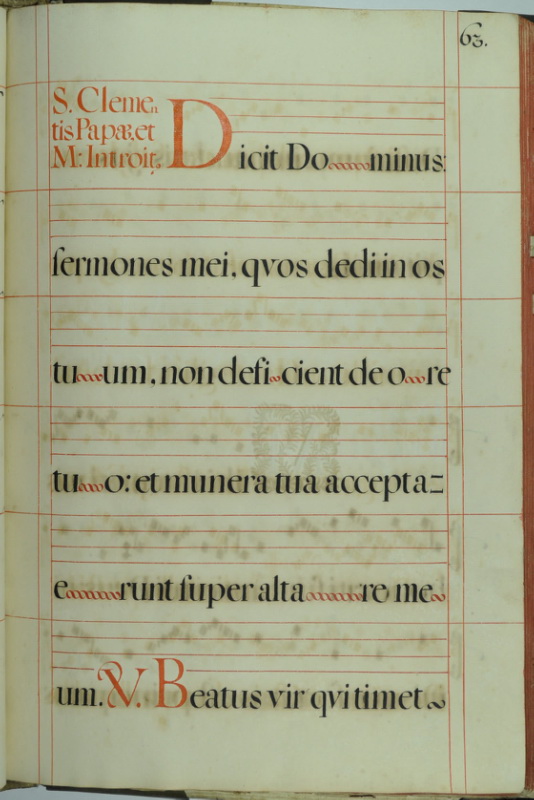 63.
S. Clemen
tis Papæ. et
M: Introit,
Dicit Do~~~minus:
sermones mei, qvos dedi in os
tu~~~um, non defi~cient de o~~re
tu~~~o: et munera tua accepta=
e~~~~~runt super alta~~~~~re me~
um. V. Beatus vir qvi timet~